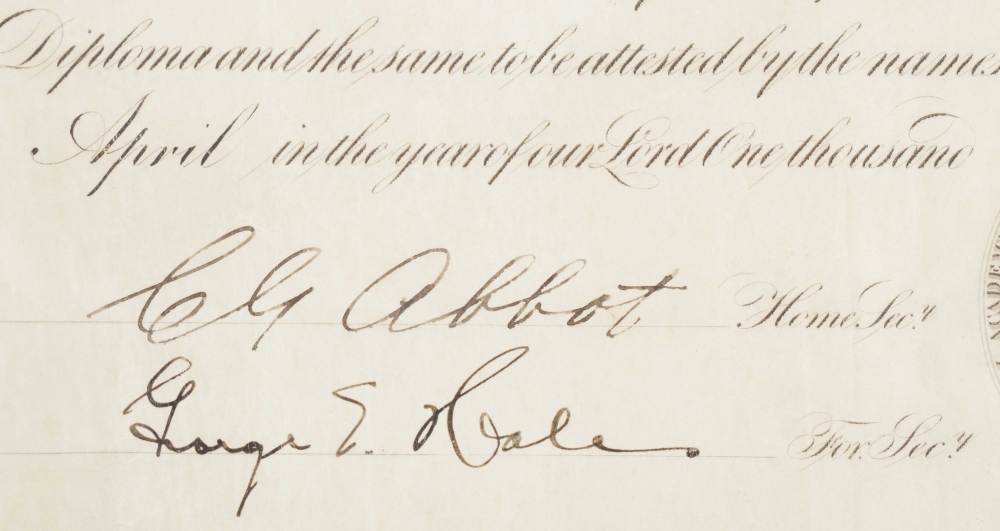 Diploma and the same to be attested by the names
April in the year of our Lord One thousand
C G Abbot Home Secy.
George E. Hale For. Secy.